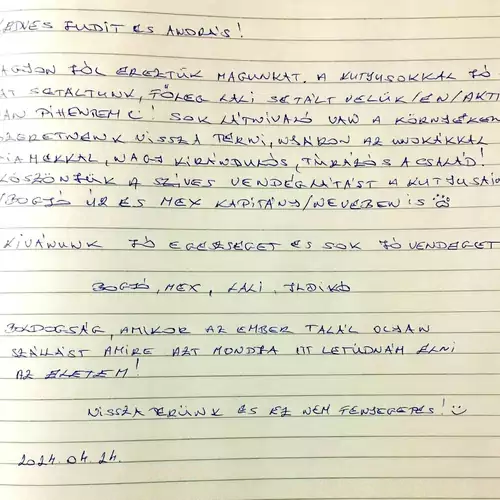 EDVES JUDIT ÉS ANDRÁS!
AGYON JÓL ÉREZTÜK MAGUNKAT. A KUTYUSOKKAL JÓ
ÁT SÉTÁLTUNK, FŐLEG LALI SÉTÁLT VELÜK/ÉN/AKTÍ
AN PIHENTEM C! SOK LÁTNIVALÓ VAN A KÖRNYÉKEN
SZERETNÉNK VISSZA TÉRNI, NYÁRON AZ UNOKÁKKAL
IAMEKKAL, NAGY KIRÁNDULÓS, TÚRÁZÓS A CSALÁD!
KÖSZÖNJÜK A SZÍVES VENDÉGLÁTÁST A KUTYUSAI
/BOGJÓ ÚR ÉS MEX KAPITÁNY/NEVÉBEN IS
KÍVÁNUNK JÓ EGÉSZSÉGET ÉS SOK JÓ VENDÉGET
BOGJÓ, MEX, LALI, ILDIKÓ
BOLDOGSÁG, AMIKOR AZ EMBER TALÁL OLYAN
SZÁLLÁST AMIRE AZT MONDJA ITT LETUDNÁM ÉLNI
AZ ÉLETEM!
VISSZATÉRÜNK ÉS EZ NEM FENYEGETÉS!
2024.04.24.